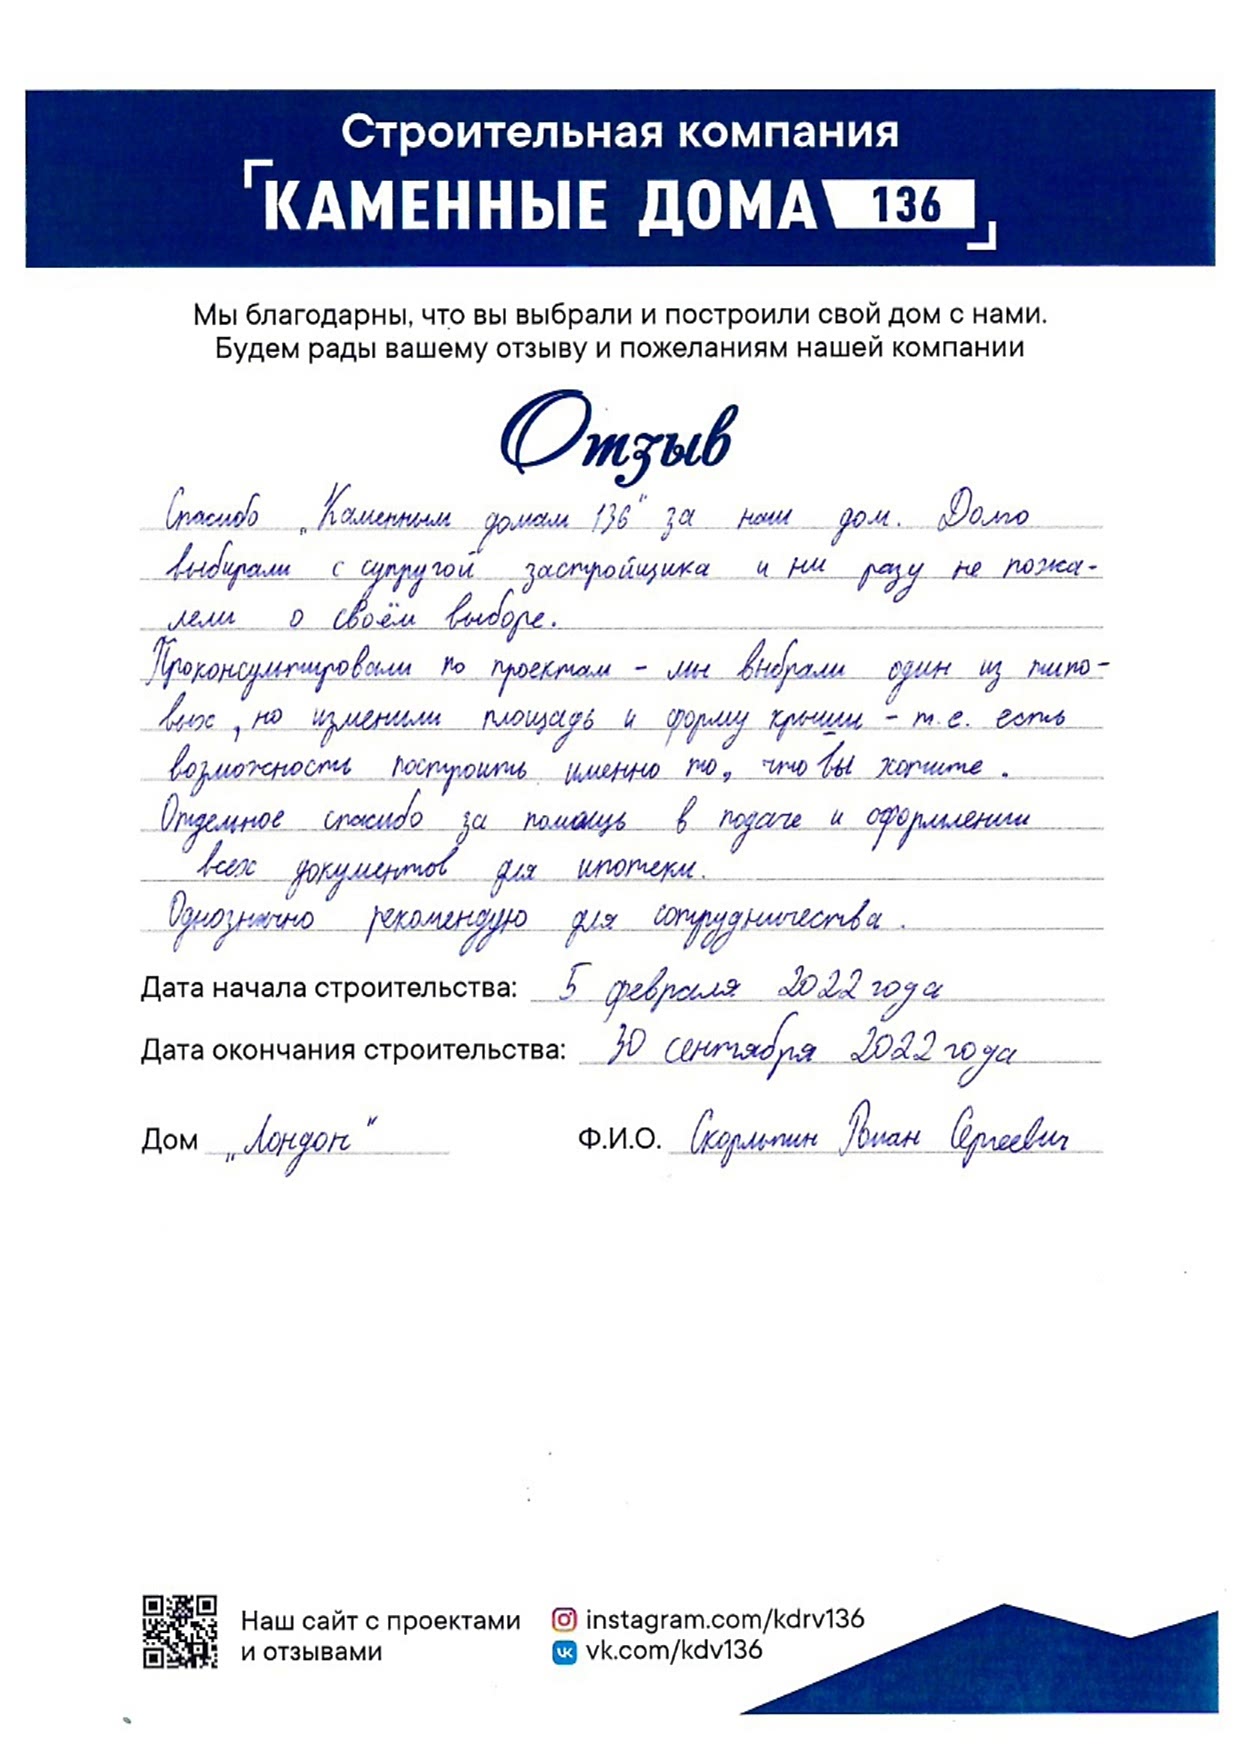 Строительная компания
КАМЕННЫЕ ДОМА 136
Мы благодарны, что вы выбрали и построили свой дом с нами.
Будем рады вашему отзыву и пожеланиям нашей компании
Отзыв
Спасибо „Каменным домам 136“ за наш дом. Долго
выбирали с супругой застройщика и ни разу не пожа-
лели о своём выборе.
Проконсультировали по проектам – мы выбрали один из типо-
вых, но изменили площадь и форму крыши – т.е. есть
возможность построить именно то, что Вы хотите.
Отдельное спасибо за помощь в подаче и оформлении
всех документов для ипотеки.
Однозначно рекомендую для сотрудничества.
Дата начала строительства: 5 февраля 2022 года
Дата окончания строительства: 30 сентября 2022 года
Дом „Лондон“ Ф.И.О. Сергеевич
Наш сайт с проектами
и отзывами
instagram.com/kdrv136
vk.com/kdv136